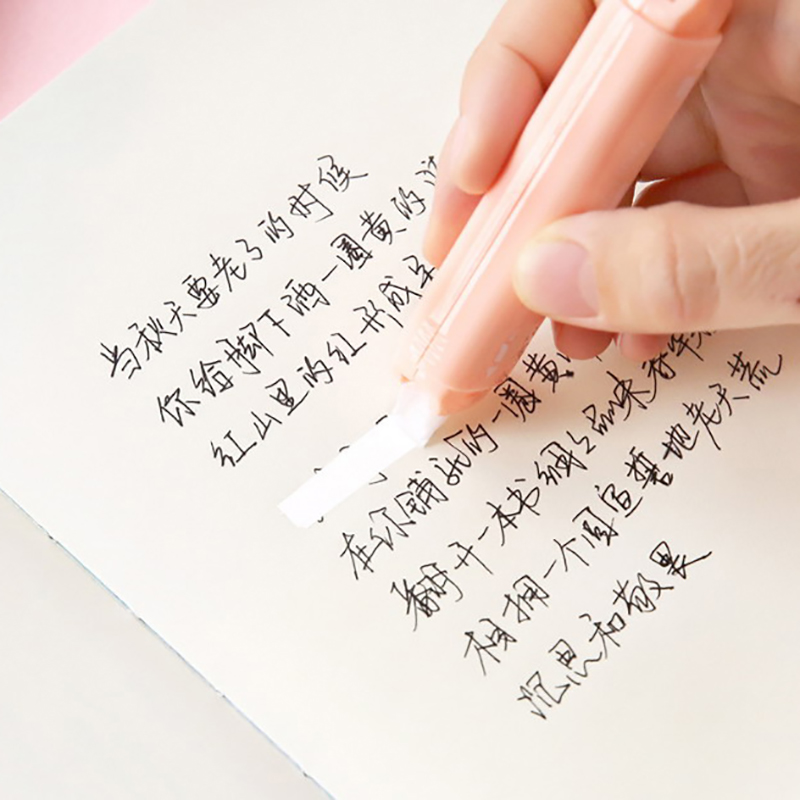 当秋天要老了的时候
你给脚下洒一圈黄的
红山里的红形成
在你铺就的一圈黄
翻开一本书细细品味
相拥一个圆宣誓地老天荒
沉思和敬畏